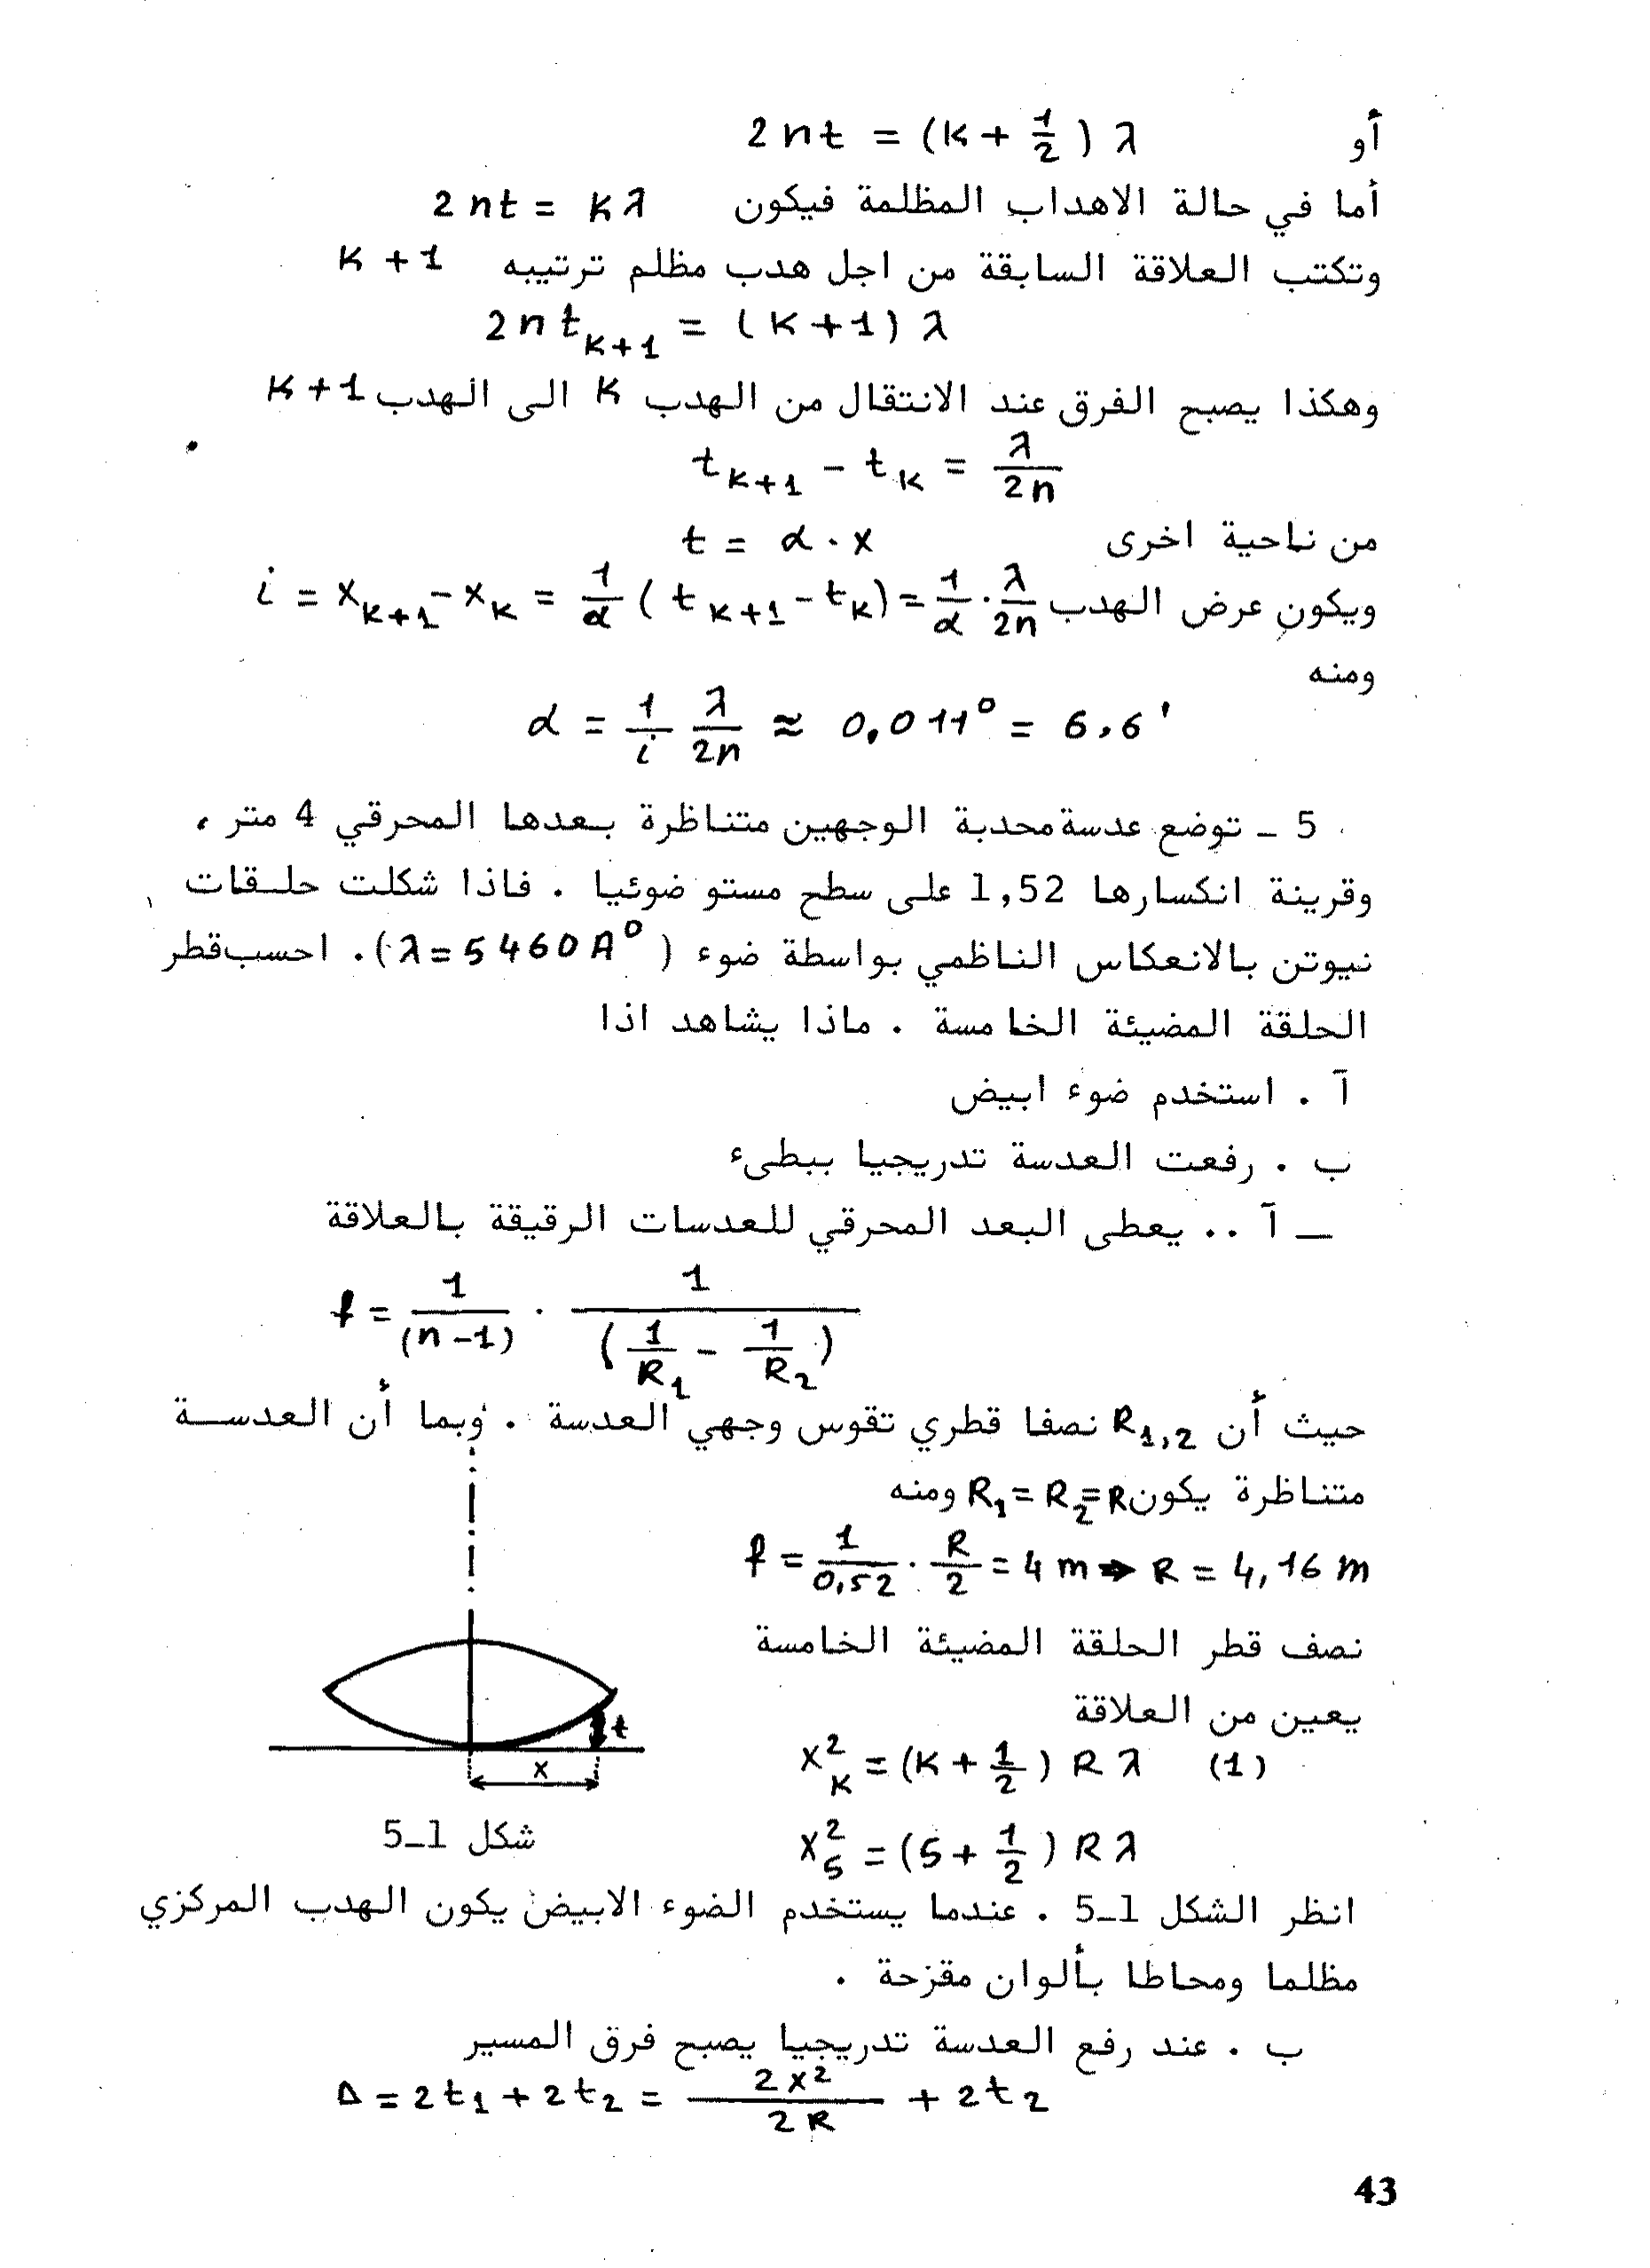 أو 2nt = (K + 1/2) λ
أما في حالة الاهداب المظلمة فيكون 2nt = Kλ
وتكتب العلاقة السابقة من اجل هدب مظلم ترتيبه K + 1
2nt_{K+1} = (K+1) λ
وهكذا يصبح الفرق عند الانتقال من الهدب K الى الهدب K+1
t_{K+1} - t_K = λ/2n
من ناحية اخرى t = α . x
ويكون عرض الهدب i = x_{K+1} - x_K = 1/α (t_{K+1} - t_K) = 1/α . λ/2n
ومنه
α = 1/i λ/2n ≈ 0,011° = 6,6'
5 ـ توضع عدسة محدبة الوجهين متناظرة بعدها المحرقي 4 متر ،
وقرينة انكسارها 1,52 على سطح مستو ضوئيا . فاذا شكلت حلـقات
نيوتن بالانعكاس الناظمي بواسطة ضوء (λ = 5460 A°) . احسب قطر
الحلقة المضيئة الخامسة . ماذا يشاهد اذا
آ . استخدم ضوء ابيض
ب . رفعت العدسة تدريجيا ببطىء
ـ آ .. يعطى البعد المحرقي للعدسات الرقيقة بالعلاقة
f = 1/(n-1) . 1/(1/R₁ - 1/R₂)
حيث أن R₁,₂ نصفا قطري تقوس وجهي العدسة . وبما أن العدســة
متناظرة يكون R₁ = R₂ = R ومنه
f = 1/0,52 . R/2 = 4 m ⇒ R = 4,16 m
نصف قطر الحلقة المضيئة الخامسة
يعين من العلاقة
x²_K = (K + 1/2) R λ (1)
x²_5 = (5 + 1/2) R λ
t
x
شكل 1ـ5
انظر الشكل 1ـ5 . عندما يستخدم الضوء الابيض يكون الهدب المركزي
مظلما ومحاطا بألوان مقزحة .
ب . عند رفع العدسة تدريجيا يصبح فرق المسير
Δ = 2t₁ + 2t₂ = 2x²/2R + 2t₂
43